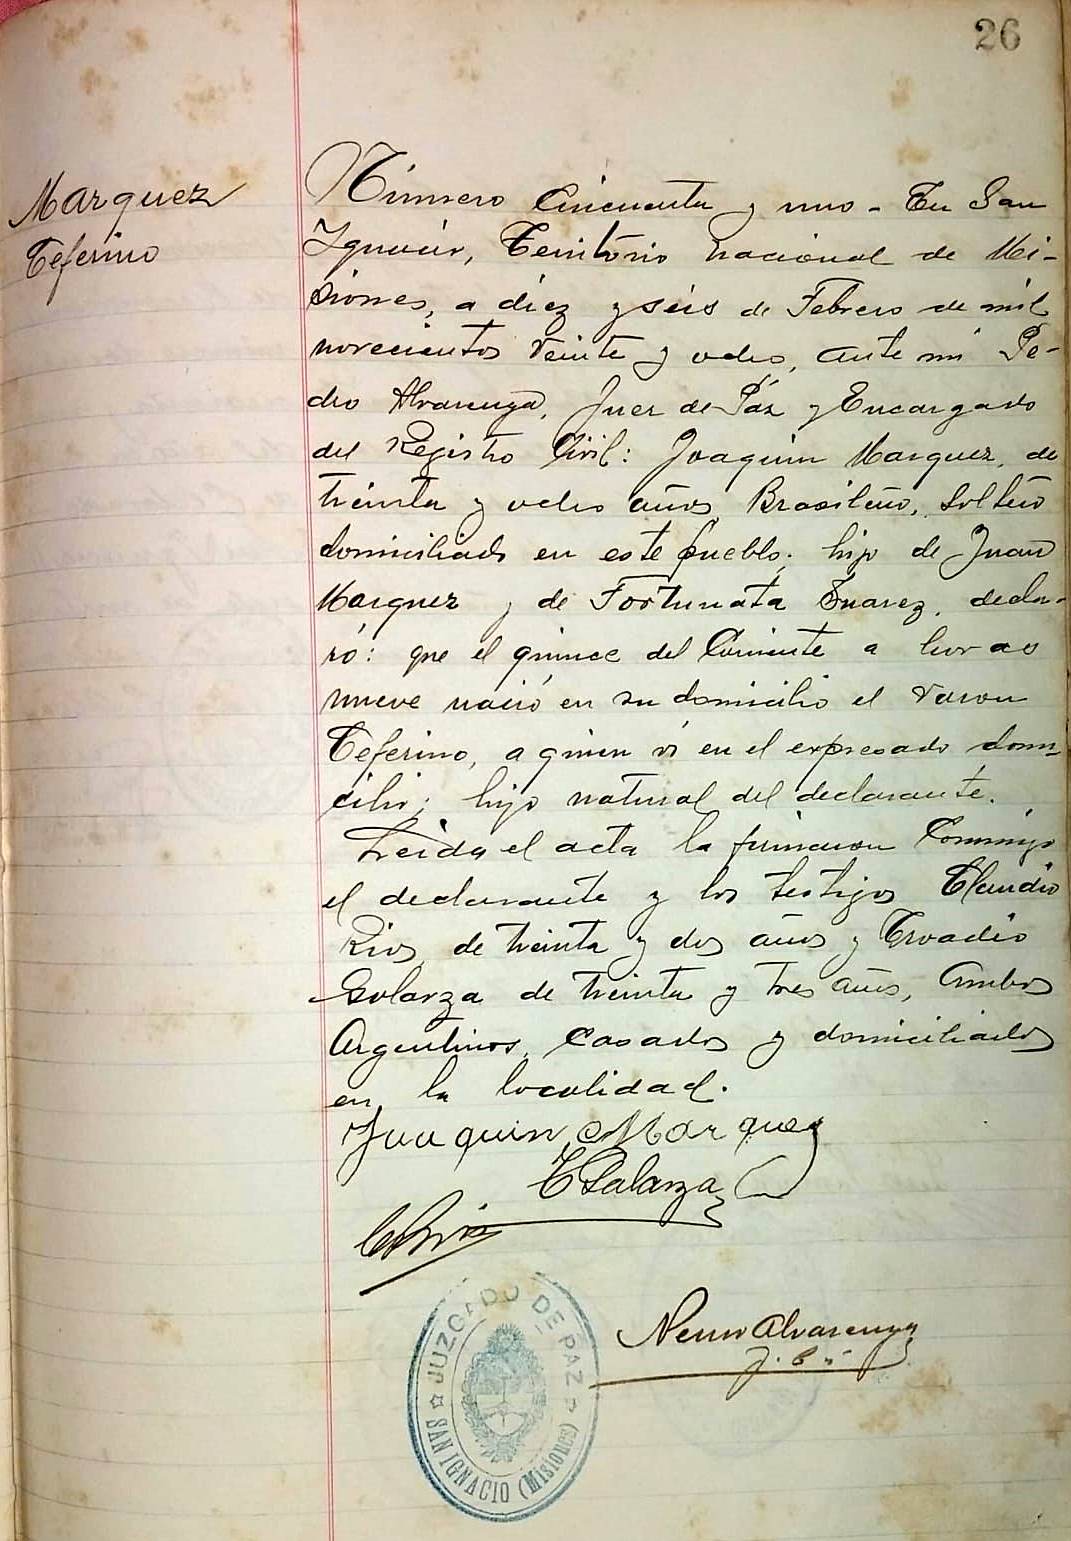 26
Marquez
Ceferino
Número Cincuenta y uno - En San
Ignacio, Territorio nacional de Mi-
siones, a diez y seis de Febrero de mil
novecientos veinte y ocho, ante mi Pe-
dro Alvarenga, Juez de Páz y Encargado
del Registro Civil: Joaquin Marquez, de
treinta y ocho años Brasileño, Soltero
domiciliado en este pueblo, hijo de Juan
Marquez y de Fortunata Suarez, decla-
ró: que el quince del Corriente a horas
nueve nació en su domicilio el varon
Ceferino, a quien ví en el expresado domi-
cilio; hijo natural del declarante.
Leida el acta la firmaron Conmigo
el declarante y los testigos Claudio
Rios, de treinta y dos años y
Galarza de treinta y tres años, ambos
Argentinos, Casados y domiciliados
en la localidad.
Juaquin Marquez
Galarza
C Rios
Alvarenga
JUZGADO DE PAZ
SAN IGNACIO (Misiones)